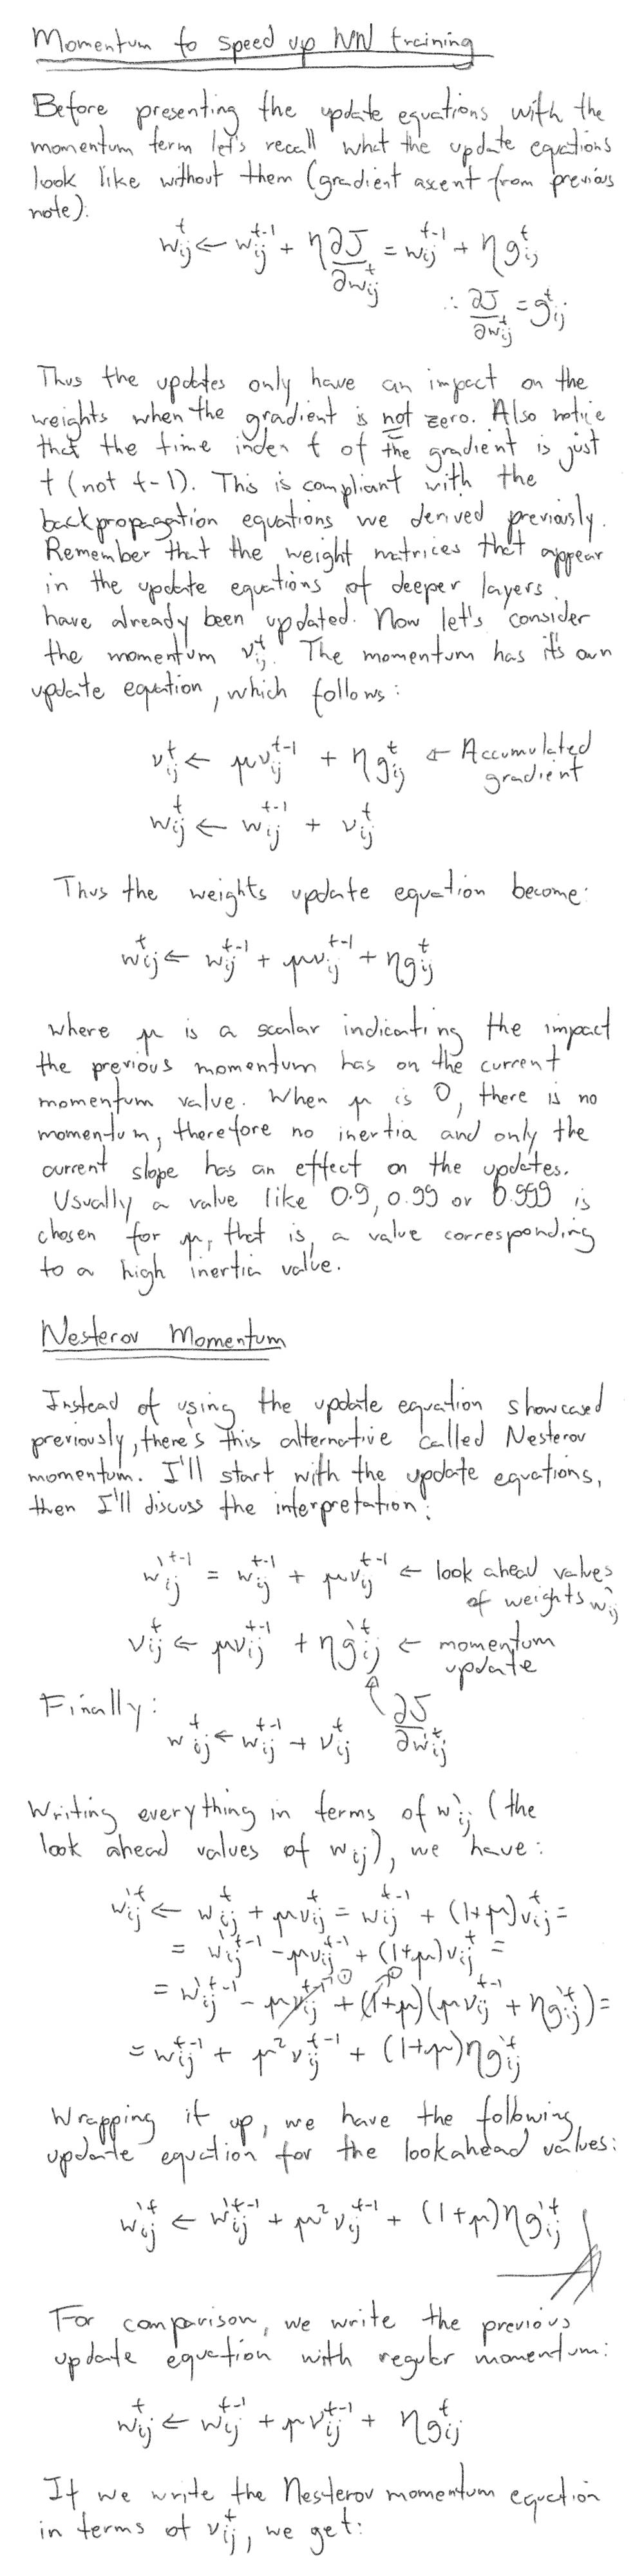 Momentum to speed up NN training
Before presenting the update equations with the
momentum term let's recall what the update equations
look like without them (gradient ascent from previous
note).
w_ij^t ← w_ij^{t-1} + η ∂J/∂w_ij^t = w_ij^{t-1} + η g_ij^t
∴ ∂J/∂w_ij^t = g_ij^t
Thus the updates only have an impact on the
weights when the gradient is not zero. Also notice
that the time index t of the gradient is just
t (not t-1). This is compliant with the
backpropagation equations we derived previously.
Remember that the weight matrices that appear
in the update equations of deeper layers
have already been updated. Now let's consider
the momentum v_ij^t. The momentum has it's own
update equation, which follows:
v_ij^t ← μv_ij^{t-1} + η g_ij^t ← Accumulated
gradient
w_ij^t ← w_ij^{t-1} + v_ij^t
Thus the weights update equation become:
w_ij^t ← w_ij^{t-1} + μv_ij^{t-1} + ηg_ij^t
where μ is a scalar indicating the impact
the previous momentum has on the current
momentum value. When μ is 0, there is no
momentum, therefore no inertia and only the
current slope has an effect on the updates.
Usually a value like 0.9, 0.99 or 0.999 is
chosen for μ, that is, a value corresponding
to a high inertia value.
Nesterov Momentum
Instead of using the update equation showcased
previously, there's this alternative called Nesterov
momentum. I'll start with the update equations,
then I'll discuss the interpretation:
w'_ij^{t-1} = w_ij^{t-1} + μv_ij^{t-1} ← look ahead values
of weights w'_ij
v_ij^t ← μv_ij^{t-1} + ηg'_ij^t ← momentum
update
Finally:
w_ij^t ← w_ij^{t-1} + v_ij^t
∂J/∂w'_ij^t
Writing everything in terms of w'_ij (the
look ahead values of w_ij), we have:
w'_ij^t ← w_ij^t + μv_ij^t = w_ij^{t-1} + (1+μ)v_ij^t =
= w'_ij^{t-1} - μv_ij^{t-1} + (1+μ)v_ij^t =
= w'_ij^{t-1} - μv_ij^{t-1} + (1+μ)(μv_ij^{t-1} + ηg'_ij^t) =
= w'_ij^{t-1} + μ²v_ij^{t-1} + (1+μ)ηg'_ij^t
Wrapping it up, we have the following
update equation for the lookahead values:
w'_ij^t ← w'_ij^{t-1} + μ²v_ij^{t-1} + (1+μ)ηg'_ij^t
For comparison, we write the previous
update equation with regular momentum:
w_ij^t ← w_ij^{t-1} + μv_ij^{t-1} + ηg_ij^t
If we write the Nesterov momentum equation
in terms of v_ij^t, we get: